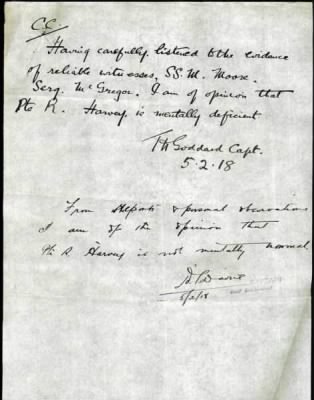 C.C.
Having carefully listened to the evidence
of reliable witnesses, S.S.M. Moore.
Serg. McGregor. I am of opinion that
Pte R. Harvey is mentally deficient
Goddard Capt.
5.2.18
From reports & personal observations
I am of the opinion that
Pte R Harvey is not mentally normal
5/2/18